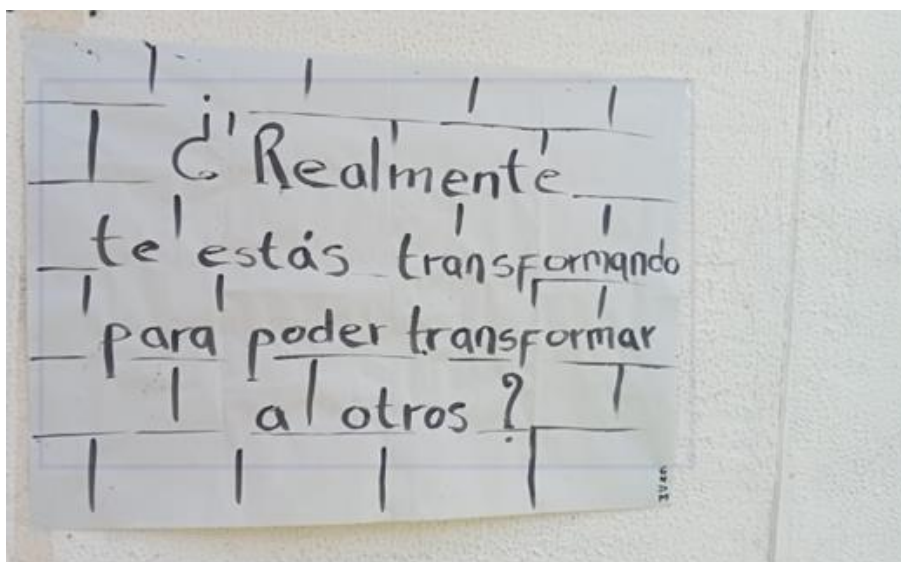 ¿Realmente
te estás transformando
para poder transformar
a otros?
Ivan